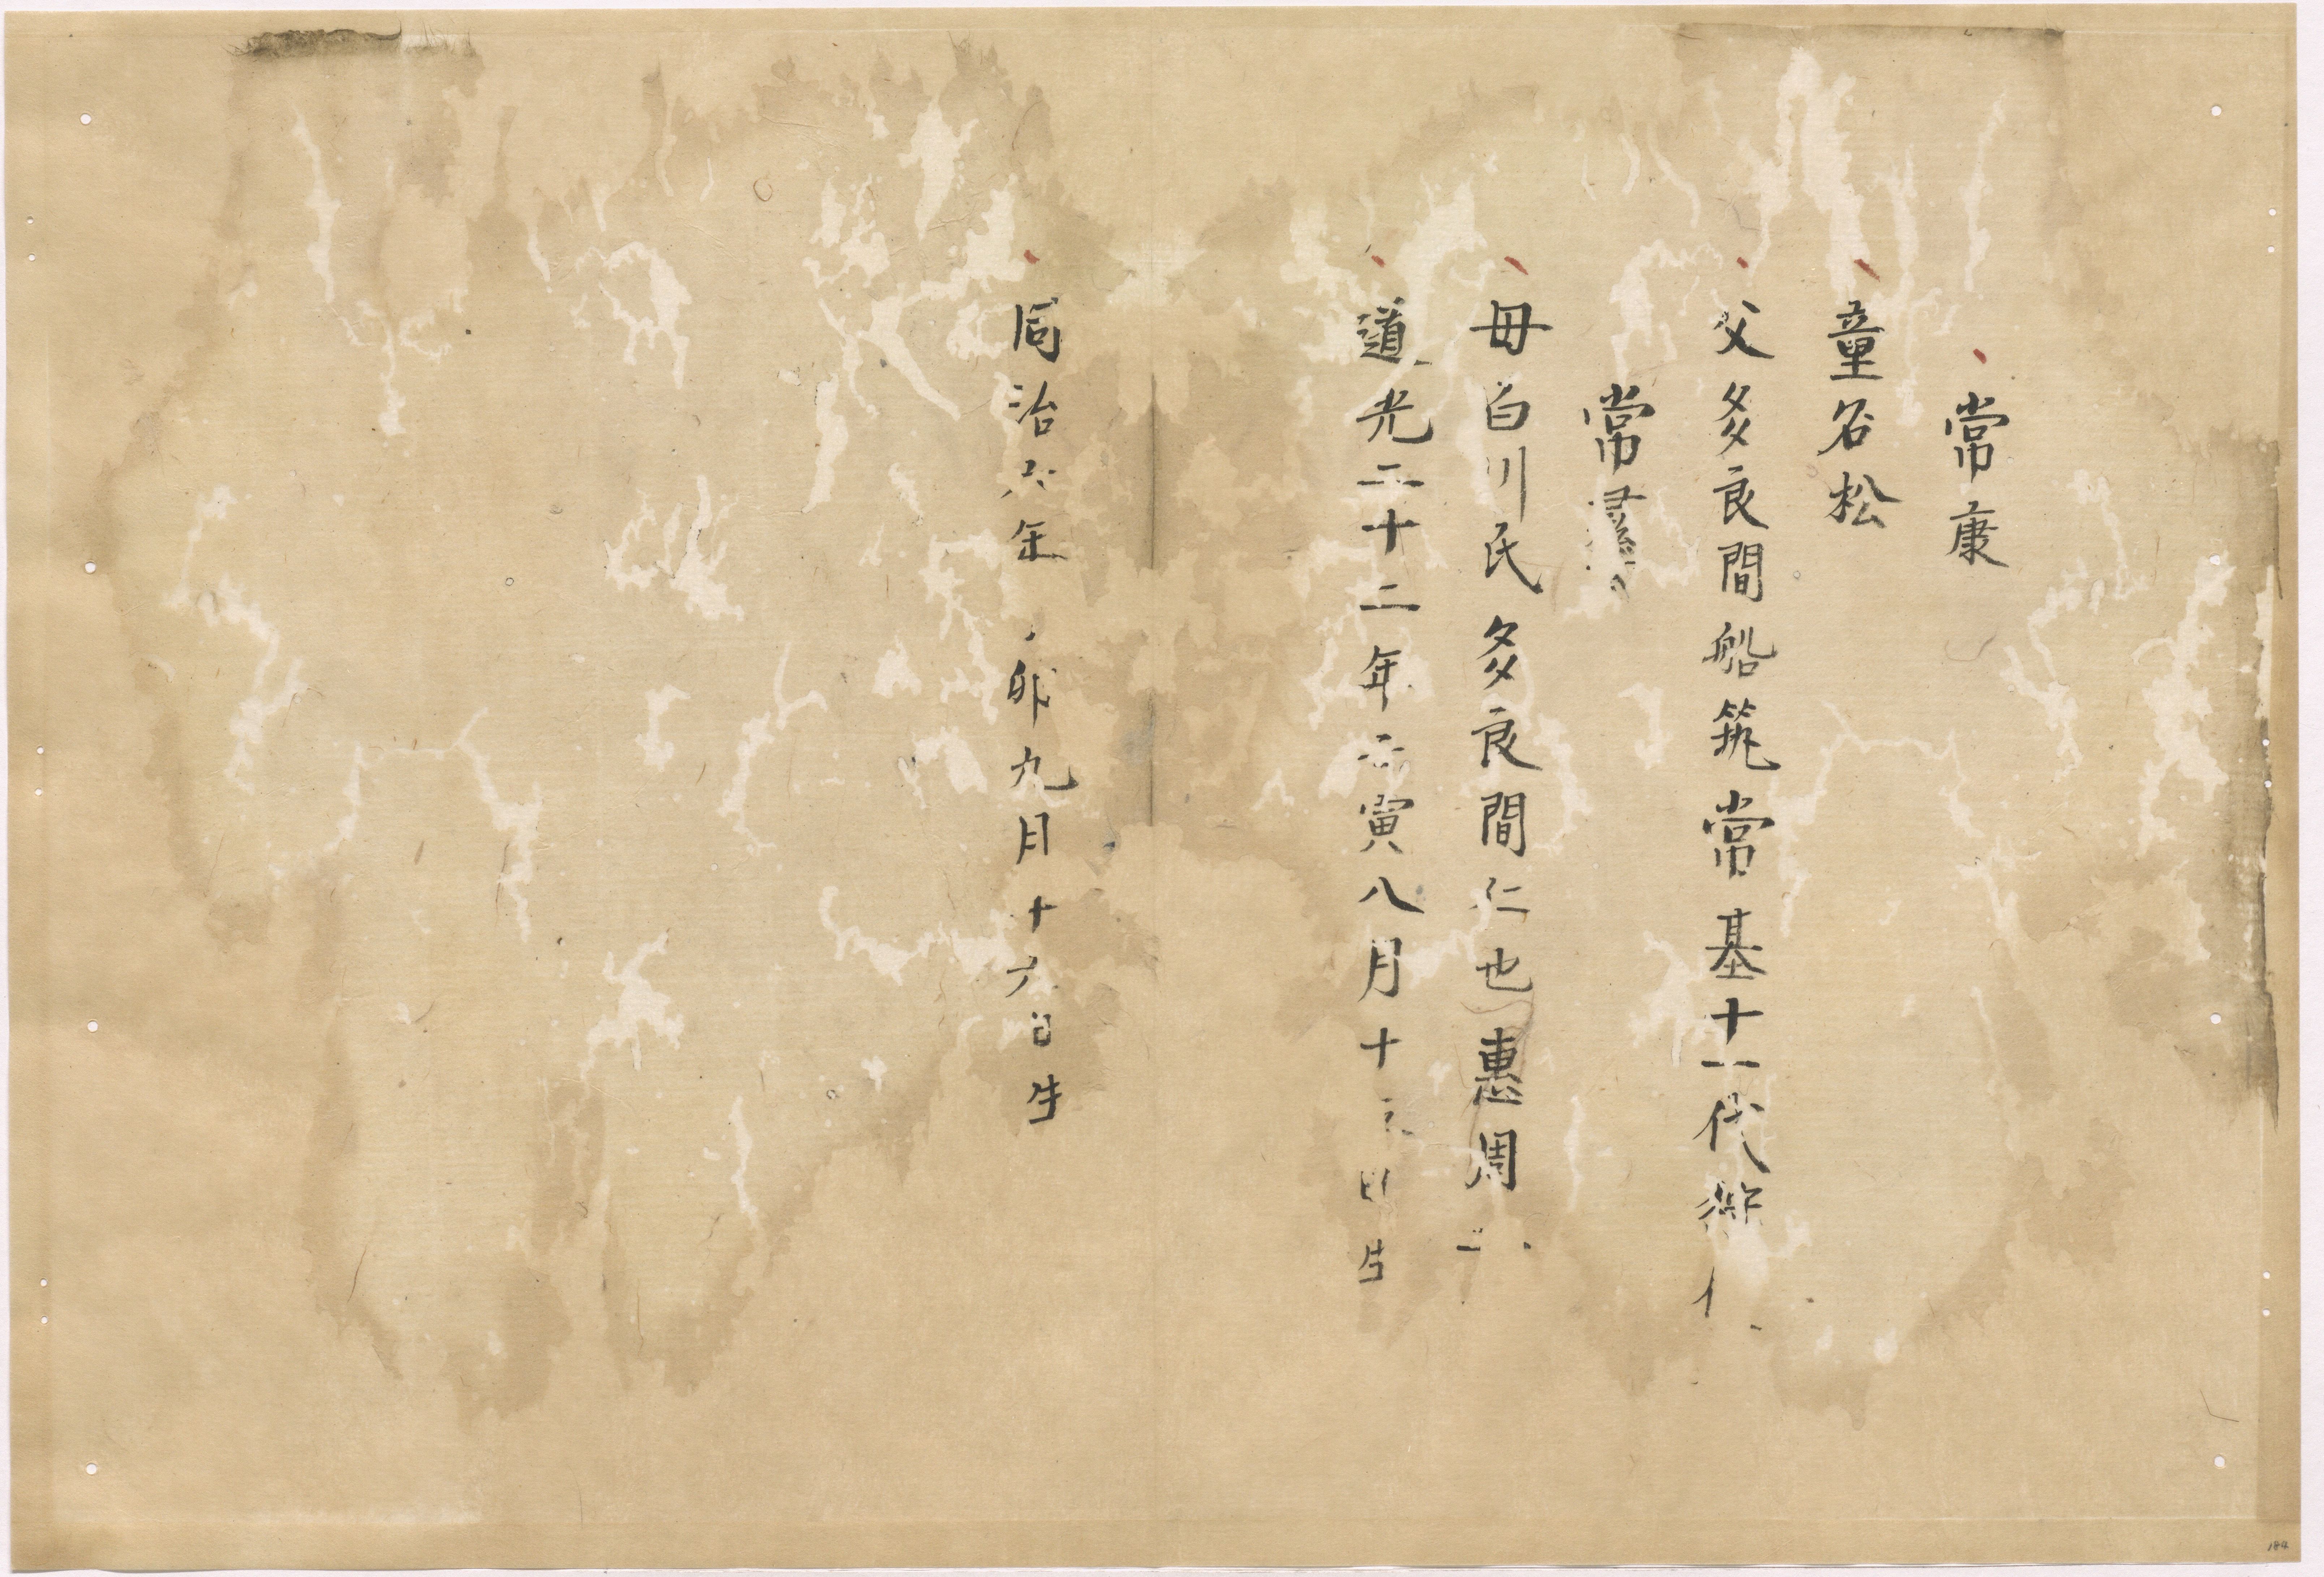 常康
童名松
父多良間船筑常基十一代
常
母白川氏多良間仁也惠周
道光二十二年壬寅八月十
同治六年丁卯九月十六日生
184